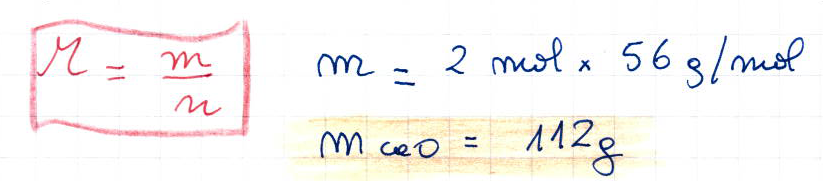 M = m/n
m = 2 mol × 56 g/mol
m CaO = 112g